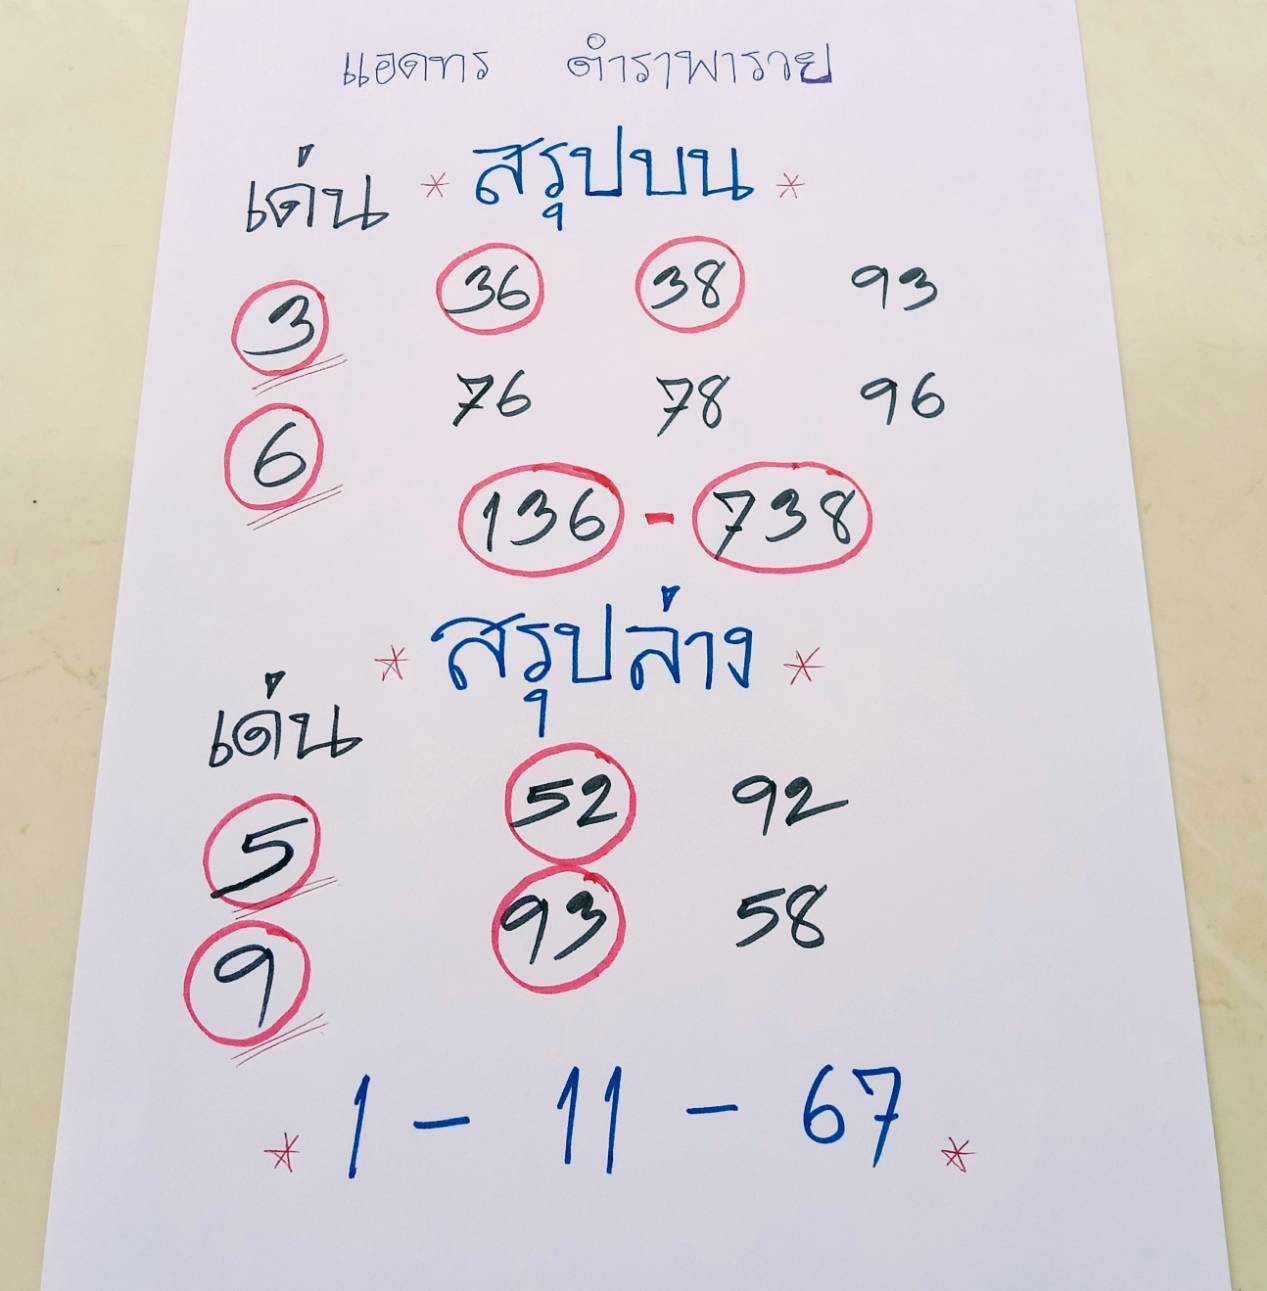 แอดทร ตำราพารวย
เด่น * สรุปบน *
3 36 38 93
6 76 78 96
136 - 738
* สรุปล่าง *
เด่น
5 52 92
9 93 58
* 1 - 11 - 67 *